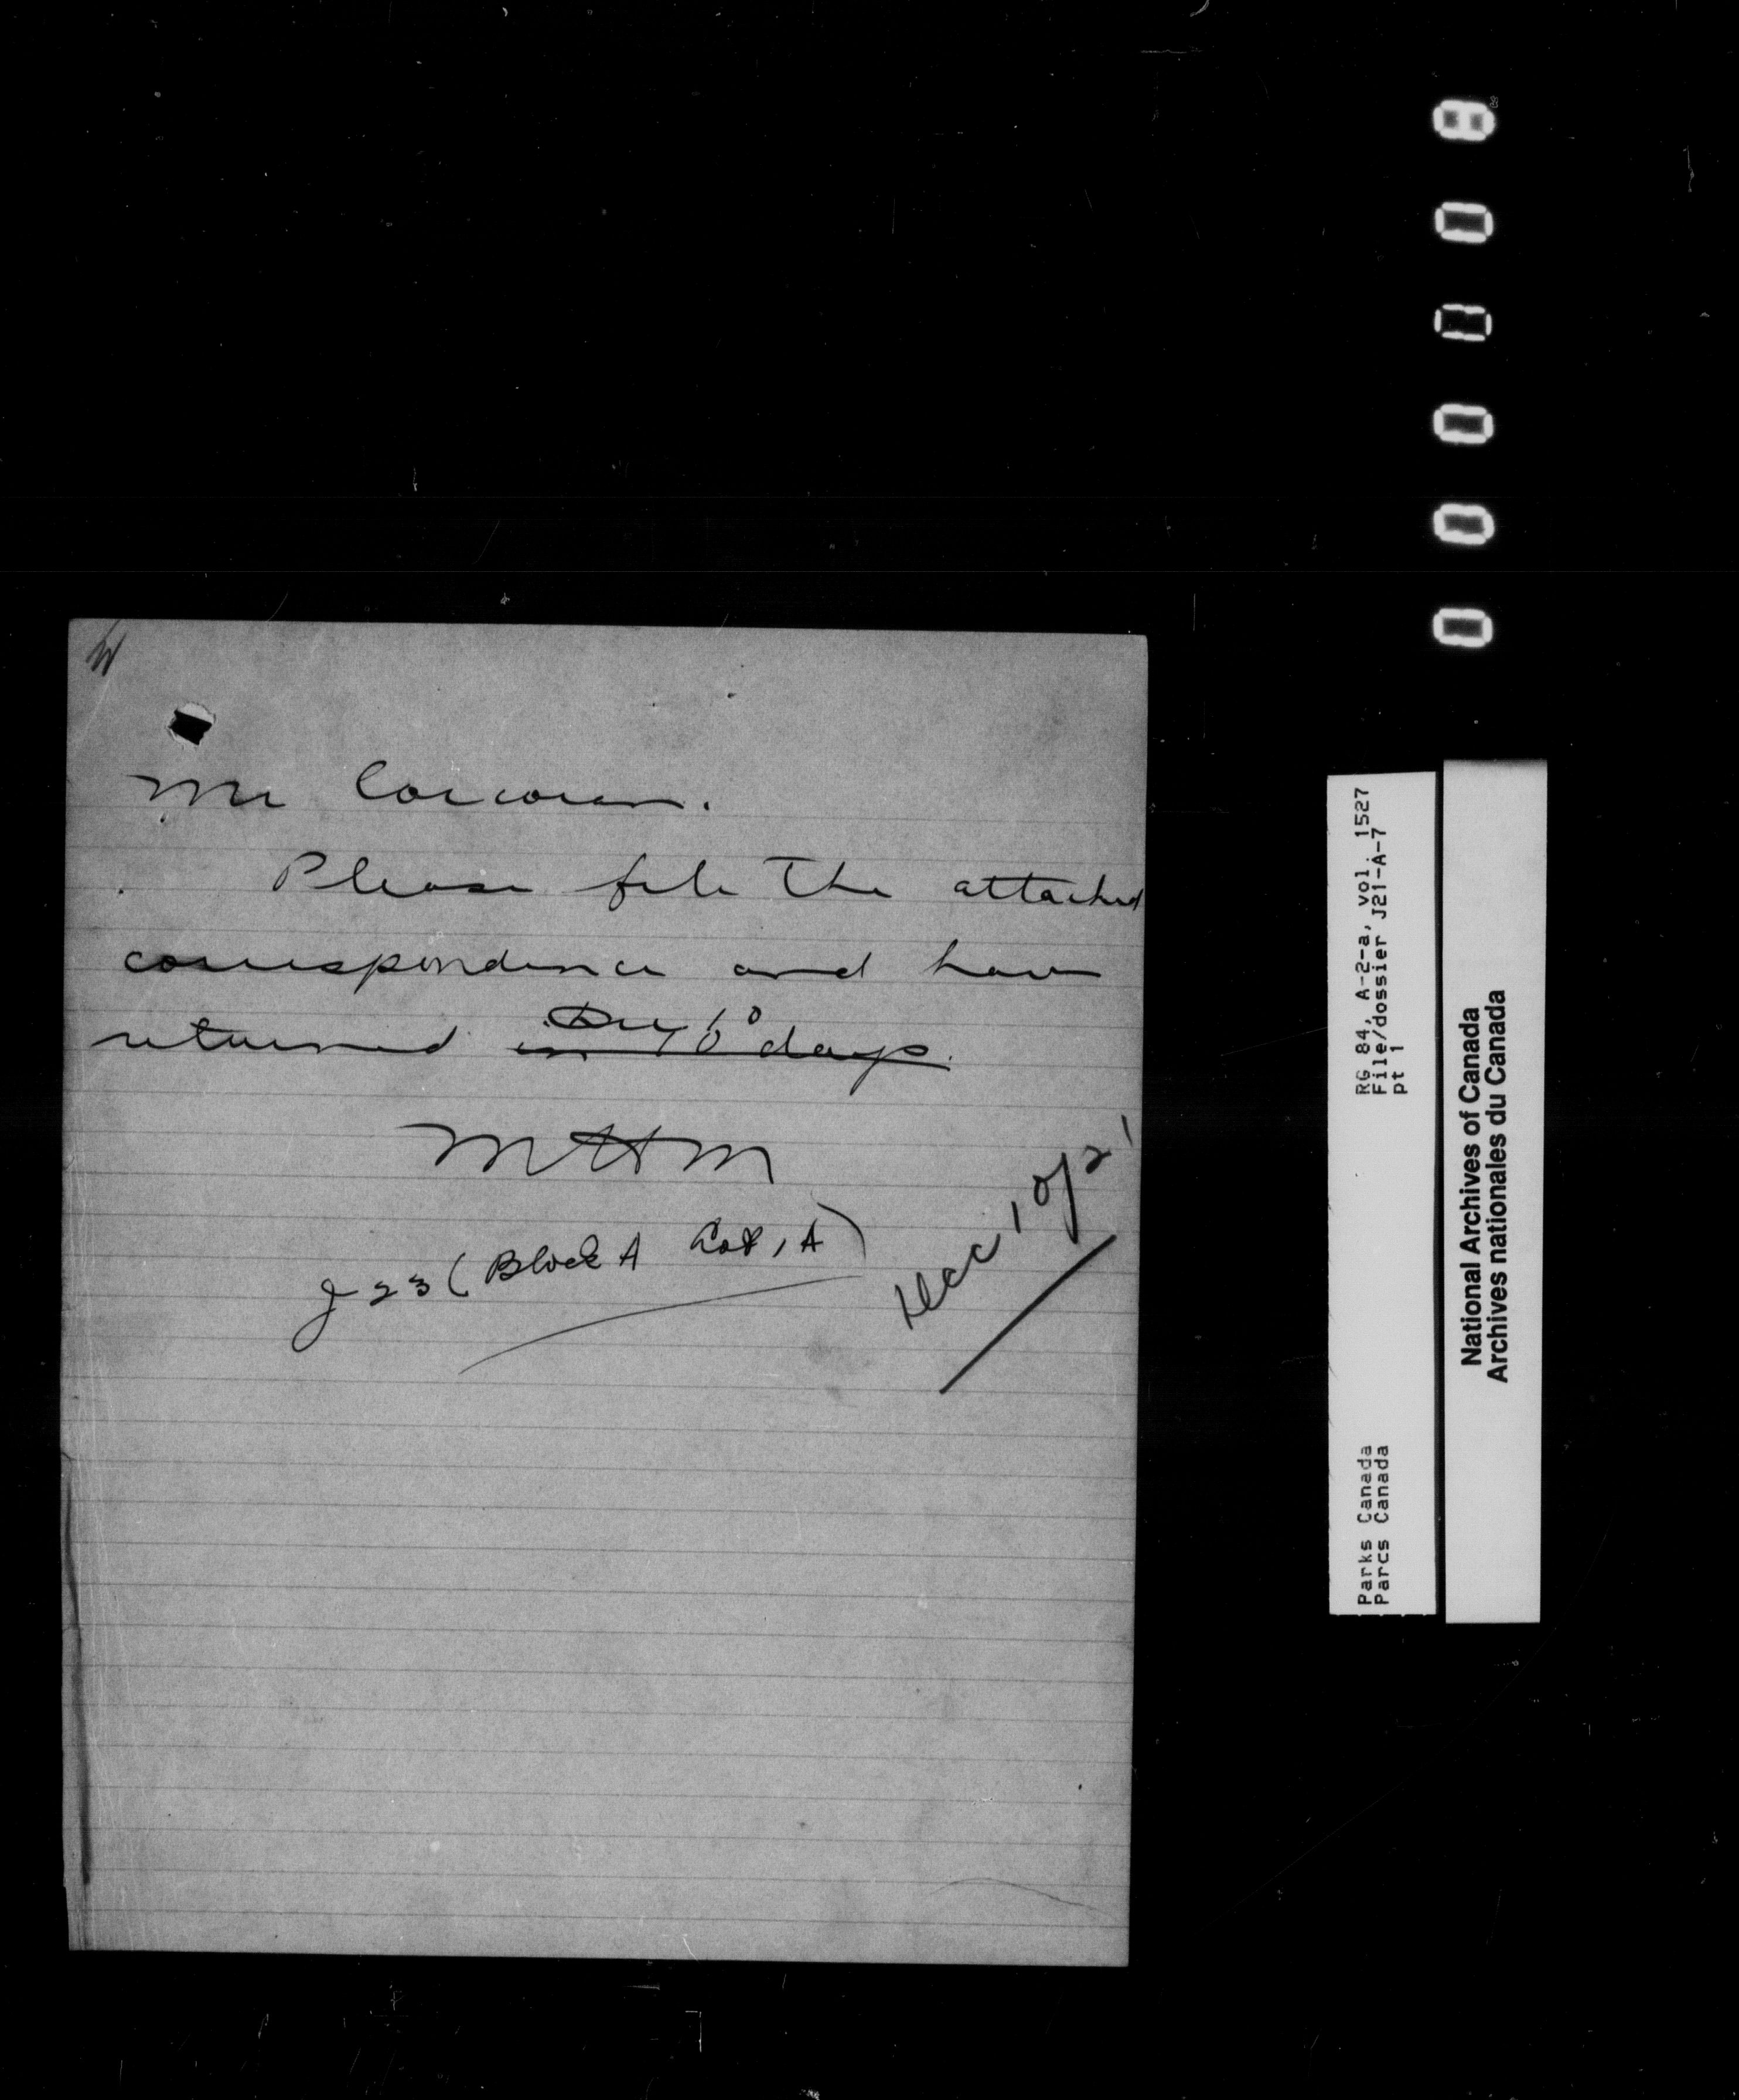 Mr Corcoran.
Please file the attached
correspondence and have
returned in 10 days.
MHM
J 23 (Block A Lot 1 A)
RG 84, A-2-a, vol. 1527
File/dossier J21-A-7
pt 1
Parks Canada
Parcs Canada
National Archives of Canada
Archives nationales du Canada